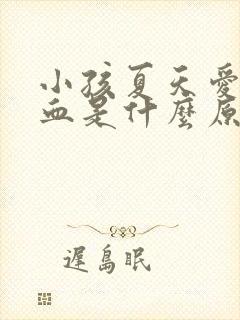 小孩夏天愛
血是什麼原
遲島眠